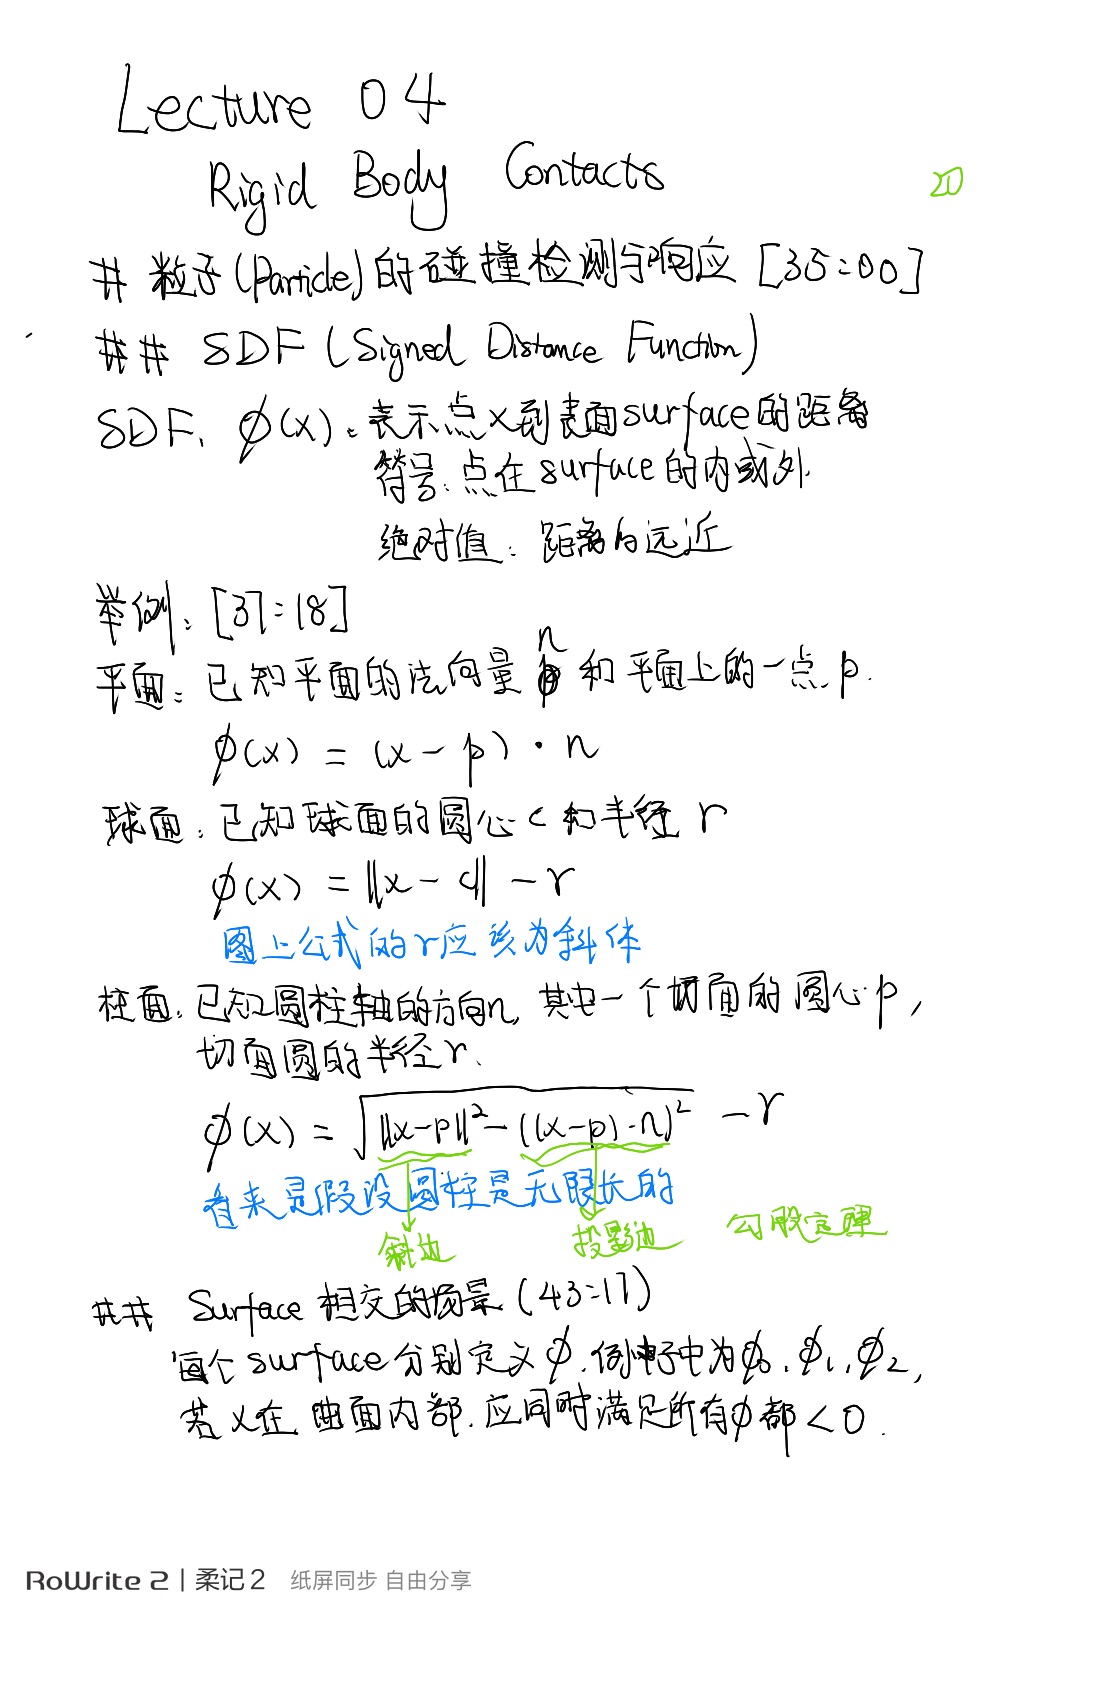 Lecture 04
Rigid Body Contacts
20
# 粒子(Particle)的碰撞检测与响应 [35:00]
## SDF (Signed Distance Function)
SDF, ϕ(x): 表示点x到表面surface的距离
符号: 点在surface的内或外.
绝对值: 距离的远近
举例: [37:18]
平面: 已知平面的法向量 n 和平面上的一点 p.
ϕ(x) = (x - p) · n
球面: 已知球面的圆心 c 和半径 r
ϕ(x) = ||x - c|| - r
图上公式的r应该为斜体
柱面: 已知圆柱轴的方向n, 其中一个切面的圆心p,
切面圆的半径r.
ϕ(x) = √(||x-p||² - ((x-p)·n)²) - r
看来是假设圆柱是无限长的
斜边 投影边 勾股定理
## Surface 相交的场景 (43:17)
每个surface分别定义ϕ, 例子中为ϕ₀, ϕ₁, ϕ₂,
若x在曲面内部, 应同时满足所有ϕ都<0.
RoWrite 2 | 柔记2 纸屏同步 自由分享